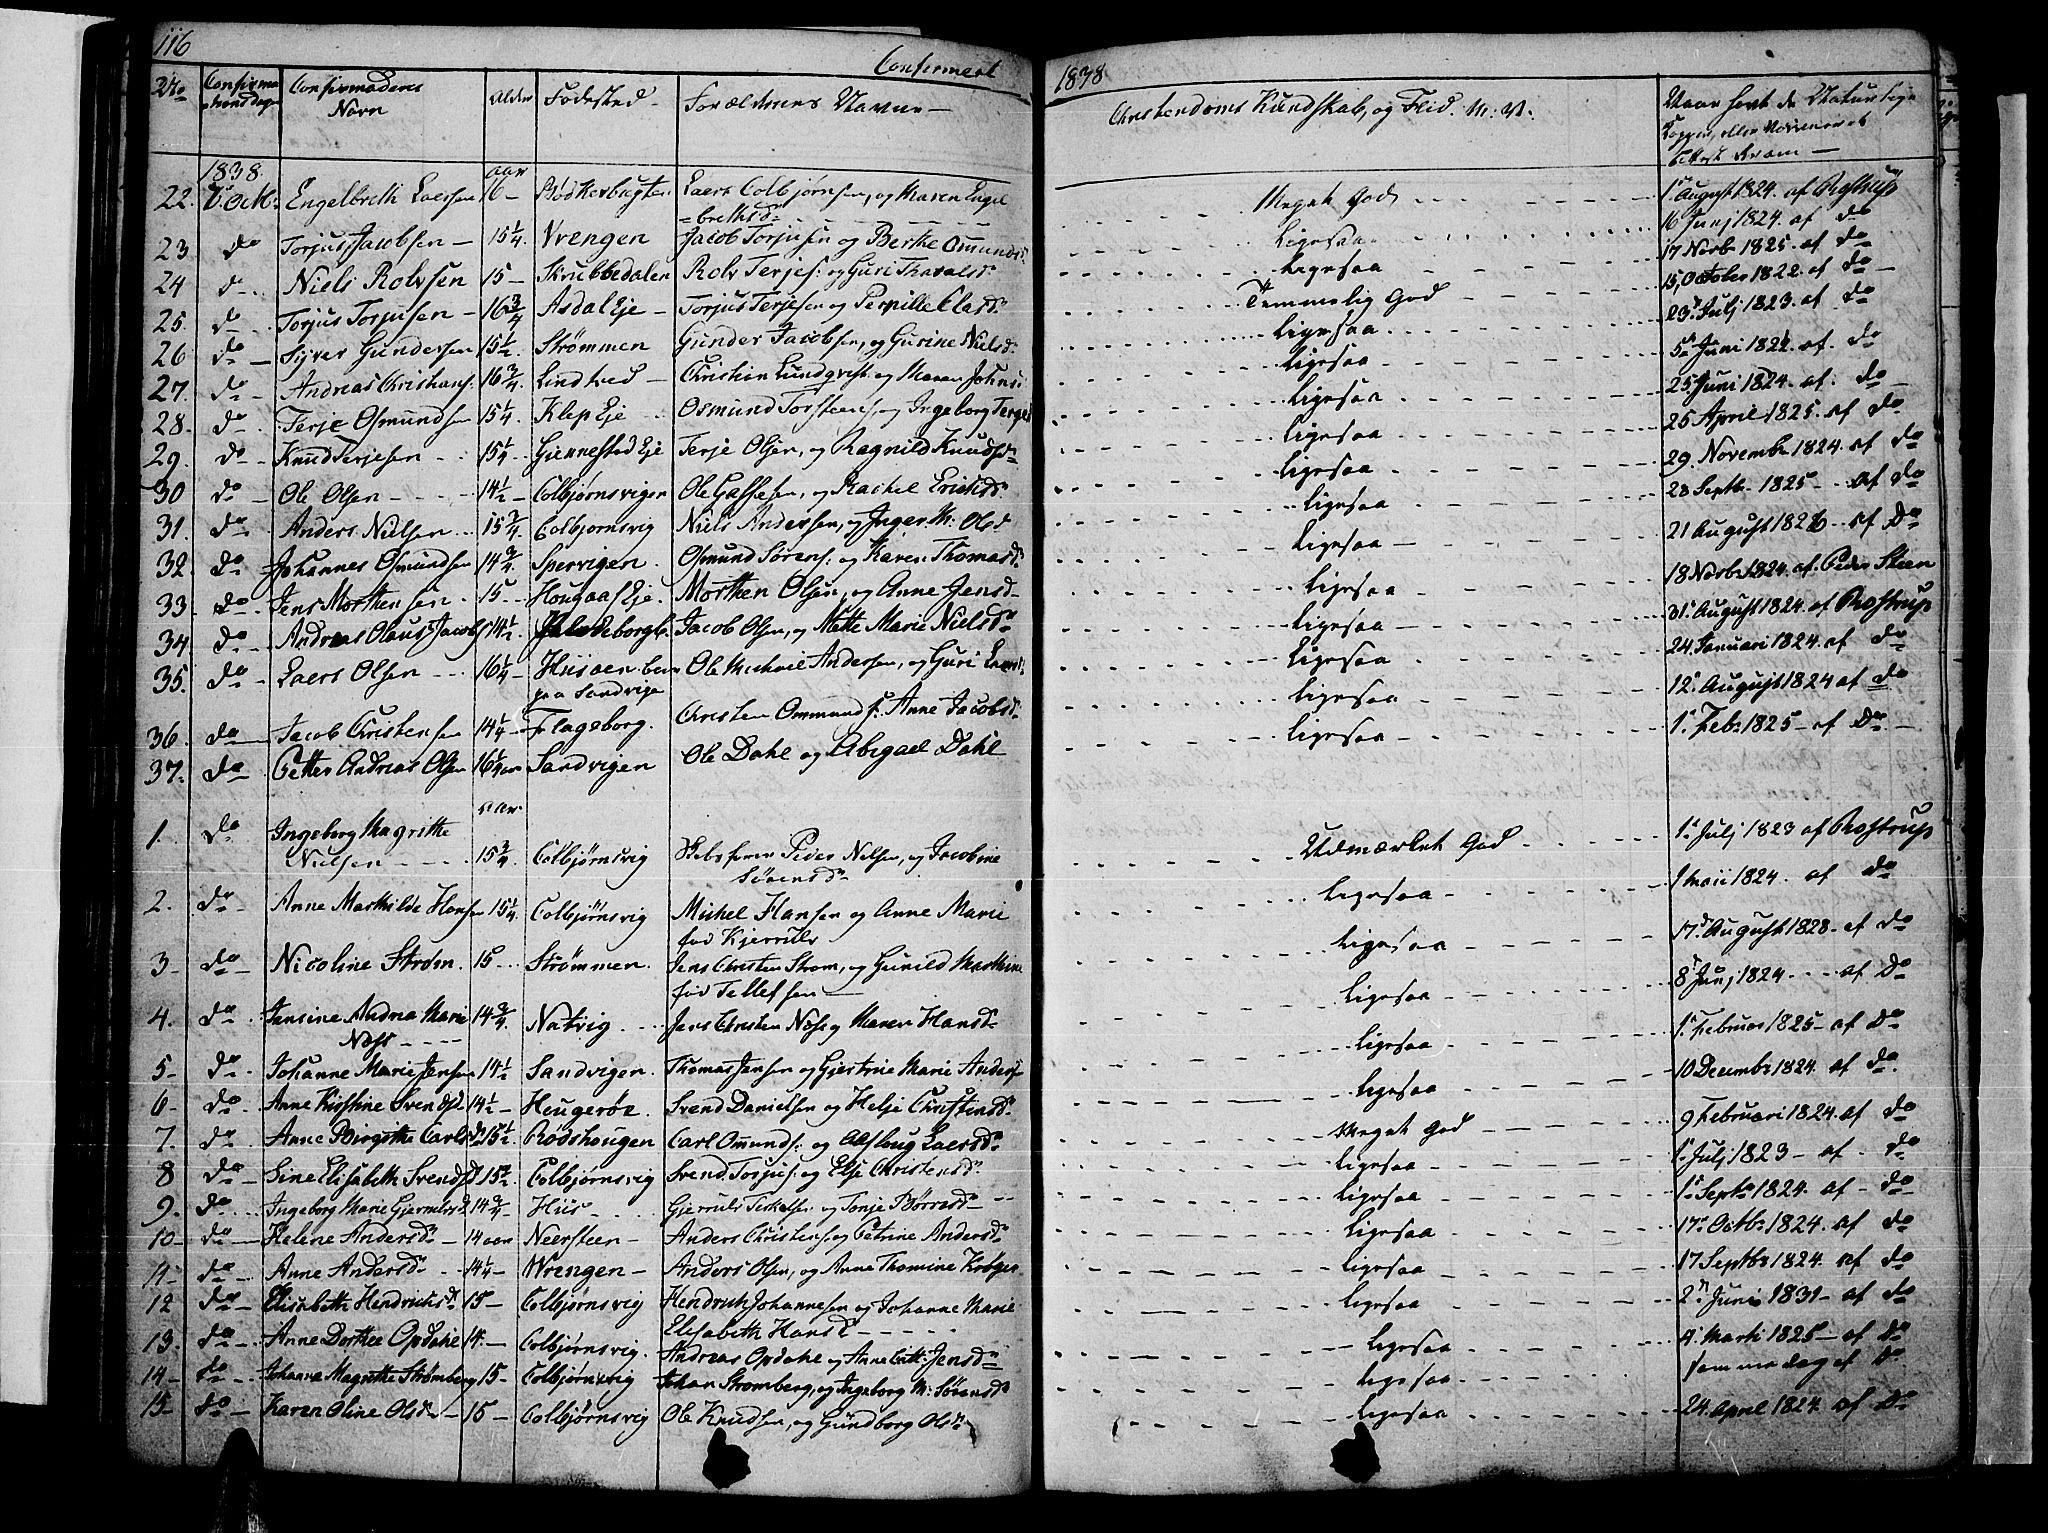 116
Confirmeret
1838
No Confirmationsdag Confirmandens Navn Alder Fødested Forældrenes Navne
Christendoms Kundskab, og Flid. M. V.
1838 aar
22. Engelbreth Laersen 16 Laers Colbjørnsen, og Maren Engelbrethsd Meget God 1 August 1824 af Rostrup
23 do Torjus Jacobsen 15 1/4 Vrengen Jacob Torjusen og Berthe Omundsd Ligesaa 16 Junj 1824 af do
24 do Niels Rolvsen 15 Skrubbedalen Rolv Terjes: og Guri Tharalsd Ligesaa 17 Novbr 1825 af do
25. do Torjus Torjusen 16 3/4 Asdal Eje Torjus Terjesen og Pernille Olasd Temmelig God 15 October 1822 af do
26 do Syver Gundersen 15 1/2 Strømmen Gunder Jacobsen, og Gurine Nielsd Ligesaa 23 Julj 1823 af do
27. do Andreas Christians: 16 3/4 Lindtved Christian Lundqvist og Maren Johns Ligesaa 5 Juni 1822 af do
28. do Terje Osmundsen 15 1/4 Klep Eje Osmund Torstens, og Ingeborg Terges Ligesaa 25 Juni 1824 af do
29. do Knud Terjesen 15 1/4 Giennestad Eje Terje Olsen, og Ragnild Knudsd Ligesaa 25 April 1825 af do
30 do Ole Olsen 14 1/2 Colbjørnsvigen Ole Gassesen, og Rachel Erichsd Ligesaa 29 Novembr 1824 af do
31. do Anders Nielsen 15 3/4 Colbjornsvig Niels Andersen, og Inger M: Olsd Ligesaa 28 Septb 1825 af do
32. do Johannes Osmundsen 14 3/4 Spervigen Osmund Sørens: og Karen Thomasd Ligesaa 21 August 1826 af do
33. do Jens Morthensen 15 Hougaas Eje Morthen Olsen, og Anne Jensd Ligesaa 18 Novbr 1824 af Peder Steen
34 do Andreas Olaus Jacobs 14 1/2 Jacob Olsen, og Mette Marie Nielsd Ligesaa 31 August 1824 af Rostrup
35. do Laers Olsen 16 1/4 paa Sandvige Ole Michael Andersen, og Guri Laersd Ligesaa 24 Januari 1824 af do
36. do Jacob Christensen 14 1/4 Flageborg. Christen Ommunds: Anne Jacobsd Ligesaa 12 August 1824 af do
37. do Petter Andreas Olsen 16 1/4 aar Sandvigen Ole Dahl og Abigael Dahl Ligesaa 1 Febr 1825 af do
aar
1. do Ingeborg Magrethe Nielsen 15 3/4 Colbjørnsvig Peder Nielsen, og Jacobine Sørensd Udmærket God 1 Julj 1823 af Rostrup
2. do Anne Mathilde Hansen 15 1/4 Colbjørnsvig Michel Hansen og Anne Marie fød Kjerrulv Ligesaa 1 Maii 1824 af do
3 do Nicoline Strøm 15 Strømmen. Jens Christen Strøm, og Gunild Marthine fød Tellefsen Ligesaa 17 August 1828 af do
4. do Jensine Andrea Marie Næss 14 3/4 Natvig Jens Christen Næss og Maren Hansd Ligesaa 8 Junj 1824 af do
5 do Johanne Marie Jensen 14 1/2 Sandvigen Thomas Jensen og Gjertrine Marie Anders Ligesaa 1 Februar 1825 af do
6 do Anne Kirstine Svendsd 14 1/2 Heugerøe. Svend Danielsen og Helje Christensd Ligesaa 10 Decembr 1824 af do
7. do Anne Birgithe Carlsd 15 1/2 Rødshougen Carl Omunds: og Aslaug Laersd Meget God 9 Februari 1824 af do
8 do Sine Elisabeth Svendsd 15 3/4 Colbjørnsvig Svend Torjus: og Else Christensd Ligesaa 1 Julj 1823 af do
9. do Ingeborg Marie Gjerrulvsd 14 3/4 Hiis Gjerrulv og Tonje Børresd Ligesaa 1 Septb 1824 af do
10 do Helene Andersd 14 aar Neersteen Anders Christens og Petrine Andersd Ligesaa 17 Octbr 1824 af do
11 do Anne Andersd 14 1/4 Wrengen Anders Olsen, og Anne Thomine Ligesaa 17 Septbr 1824 af do
12 do Elisabeth Hendrichsd 15 Colbjørnsvig Hendrich Johannesen og Johanne Marie Elisabeth Hansd Ligesaa 2 Juni 1831 af do
13. do Anne Dorthee Opdahl 14 Colbjørnsvig. Andreas Opdahl og Anne Cath: Jensd Ligesaa 4 Marti 1825 af do
14 do Johanne Magrethe Strømberg 15 Colbjørnsvig Johan Stromberg, og Ingeborg M: Sørensd Ligesaa samme dag af do
15 do Karen Oline Olsd 15 Colbjørnsvig Ole Knudsen, og Gundborg Olsd Ligesaa 24 April 1824 af do